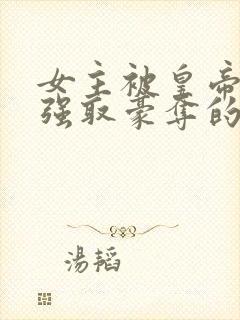 女主被皇帝
强取豪夺的
湯韜